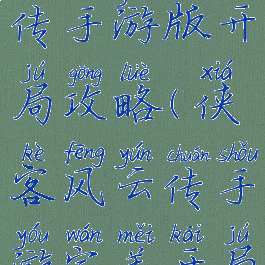 传手游版开
jú gōng lüè xiá
局攻略(侠
kè fēng yún chuán shǒu
客风云传手
yóu wán měi kāi jú
游完美开局